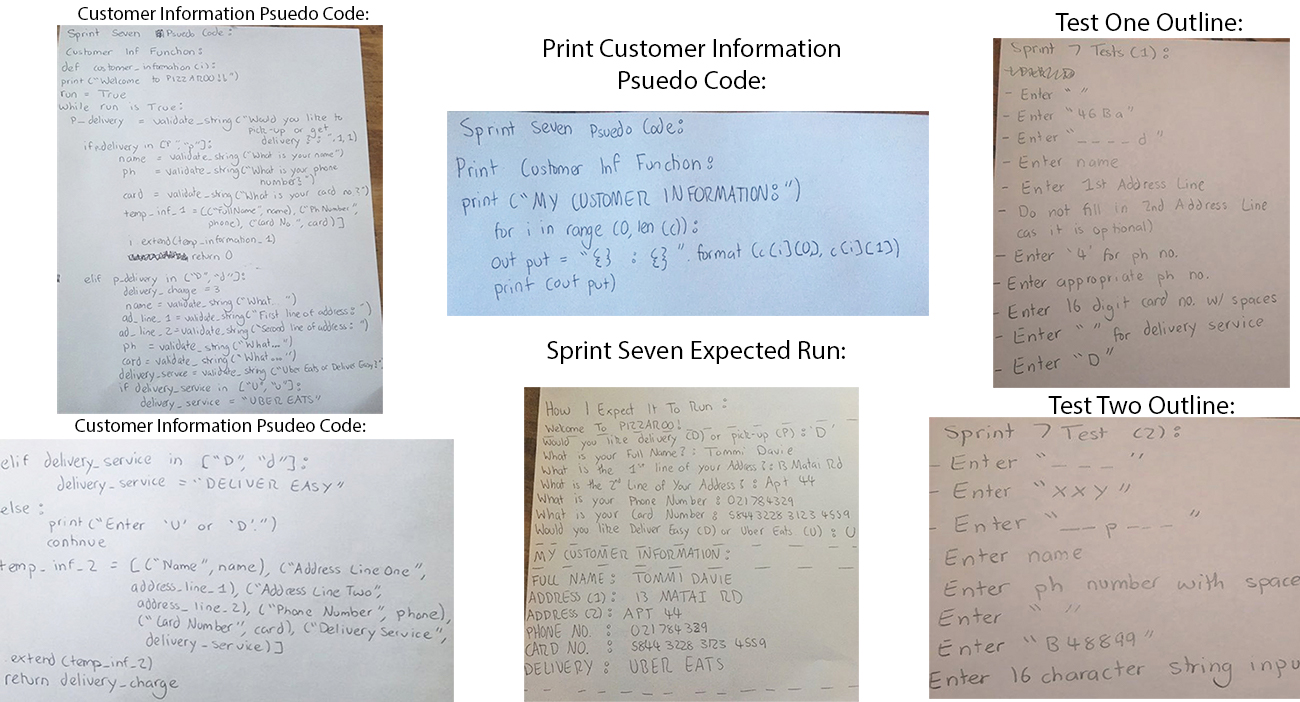 Customer Information Psuedo Code:
Sprint Seven Psuedo Code:
Customer Inf Function:
def customer_information(i):
print ("Welcome to PIZZAROO!!")
run = True
while run is True:
p_delivery = validate_string ("Would you like to
pick-up or get
delivery : ", 1, 1)
if p_delivery in ["P", "p"]:
name = validate_string ("What is your name")
ph = validate_string ("What is your phone
number?")
card = validate_string ("What is your card no?")
temp_inf_1 = [("full Name", name), ("Ph Number",
phone), ("Card No", card)]
i extend (temp_information_1)
return 0
elif p_delivery in ["D", "d"]:
delivery_charge = 3
name = validate_string ("What... ")
ad_line_1 = validate_string ("First line of address: ")
ad_line_2 = validate_string ("Second line of address: ")
ph = validate_string ("What...")
card = validate_string ("What...")
delivery_service = validate_string ("Uber Eats or Deliver Easy?"
if delivery_service in ["U", "u"]:
delivery_service = "UBER EATS"
Customer Information Psudeo Code:
elif delivery_service in ["D", "d"]:
delivery_service = "DELIVER EASY"
else :
print ("Enter 'U' or 'D'.")
continue
temp_inf_2 = [("Name", name), ("Address Line One",
address_line_1), ("Address Line Two",
address_line_2), ("Phone Number", phone),
("Card Number", card), ("Delivery Service",
delivery_service)]
extend (temp_inf_2)
return delivery_charge
Print Customer Information
Psuedo Code:
Sprint Seven Psuedo Code:
Print Customer Inf Function:
print ("MY CUSTOMER INFORMATION:")
for i in range (0, len (c)):
out put = "{} : {}". format (c[i][0], c[i][1])
print (out put)
Sprint Seven Expected Run:
How I Expect It To Run :
Welcome To PIZZAROO!
Would you like delivery (D) or pick-up (P) : 'D'
What is your Full Name? : Tommi Davie
What is the 1st line of your Address? : 13 Matai Rd
What is the 2nd Line of Your Address? : Apt 44
What is your Phone Number : 021784329
What is your Card Number : 5844 3228 3123 4559
Would you like Deliver Easy (D) or Uber Eats (U) : U
MY CUSTOMER INFORMATION :
FULL NAME : TOMMI DAVIE
ADDRESS (1) : 13 MATAI RD
ADDRESS (2) : APT 44
PHONE NO. : 021784329
CARD NO. : 5844 3228 3123 4559
DELIVERY : UBER EATS
Test One Outline:
Sprint 7 Tests (1) :
- Enter " "
- Enter "46 Ba"
- Enter "_ _ _ _ d "
- Enter name
- Enter 1st Address Line
- Do not fill in 2nd Address Line
(as it is optional)
- Enter '4' for ph no.
- Enter appropriate ph no.
- Enter 16 digit card no. w/ spaces
- Enter " " for delivery service
- Enter "D"
Test Two Outline:
Sprint 7 Test (2) :
- Enter "_ _ _ "
- Enter "XXY"
- Enter "_ _ p _ _ _ "
Enter name
Enter ph number with space
Enter " "
Enter "B48899"
Enter 16 character string inpu